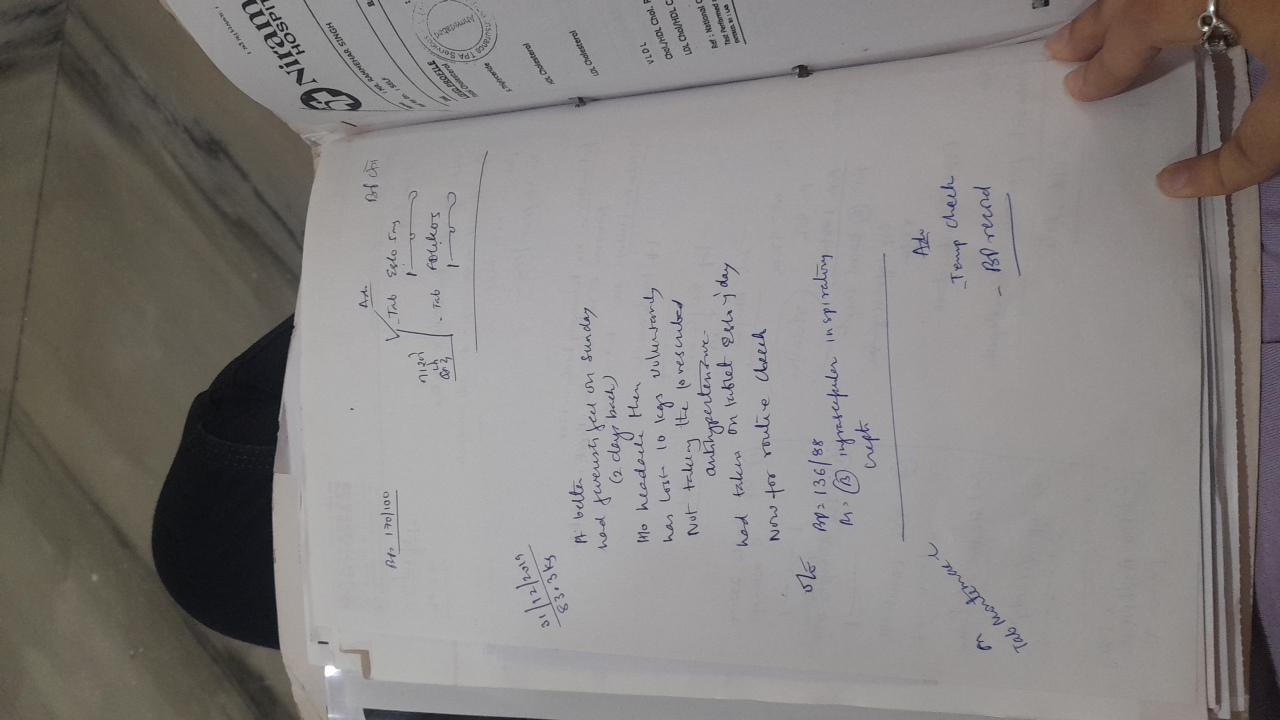 BP= 170/100
Ad.
Tab Eslo 5mg
- Tab
31/12/2019
83.3 kg
Pt better
had feverish feel on Sunday
(2 days back)
H/o headache then
has lost 10 kgs voluntarily
Not taking the prescribed
antihypertensive
had taken on tablet Eslo day
Now for routine check
O/E
BP= 136/88
(B) infrascapular inspiratory
crepts
Adv
- Temp check
- BP record
Tab Montemac-L
Niram
HOSPIT
MR. RAMMEHAR SINGH
SELF
LIPID PROFILE
S.Triglyceride
HDL Cholesterol
LDL Cholesterol
VLDL
Chol/HDL Chol. R
LDL Chol/HDL C
Ref : National C
Test Performed
ENTERED BY : LAB